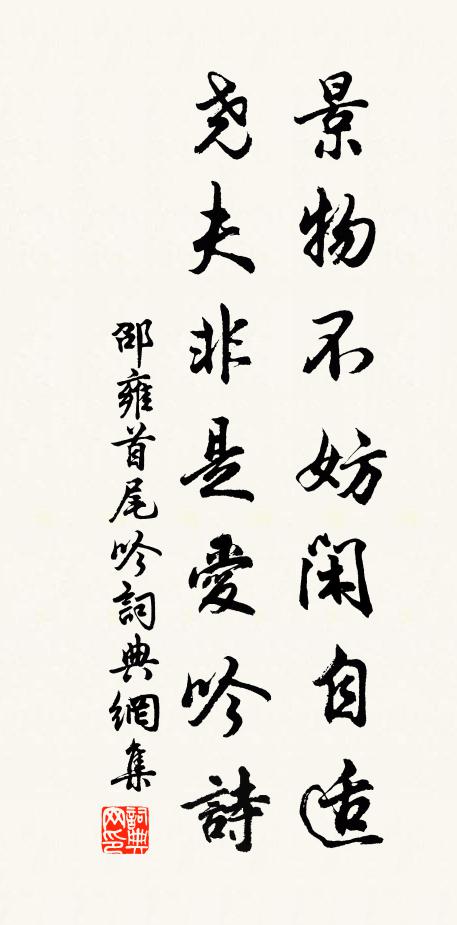 景物不妨閑自适
尧夫非是愛吟詩
邵雍首尾吟詞典網集
詞典网印